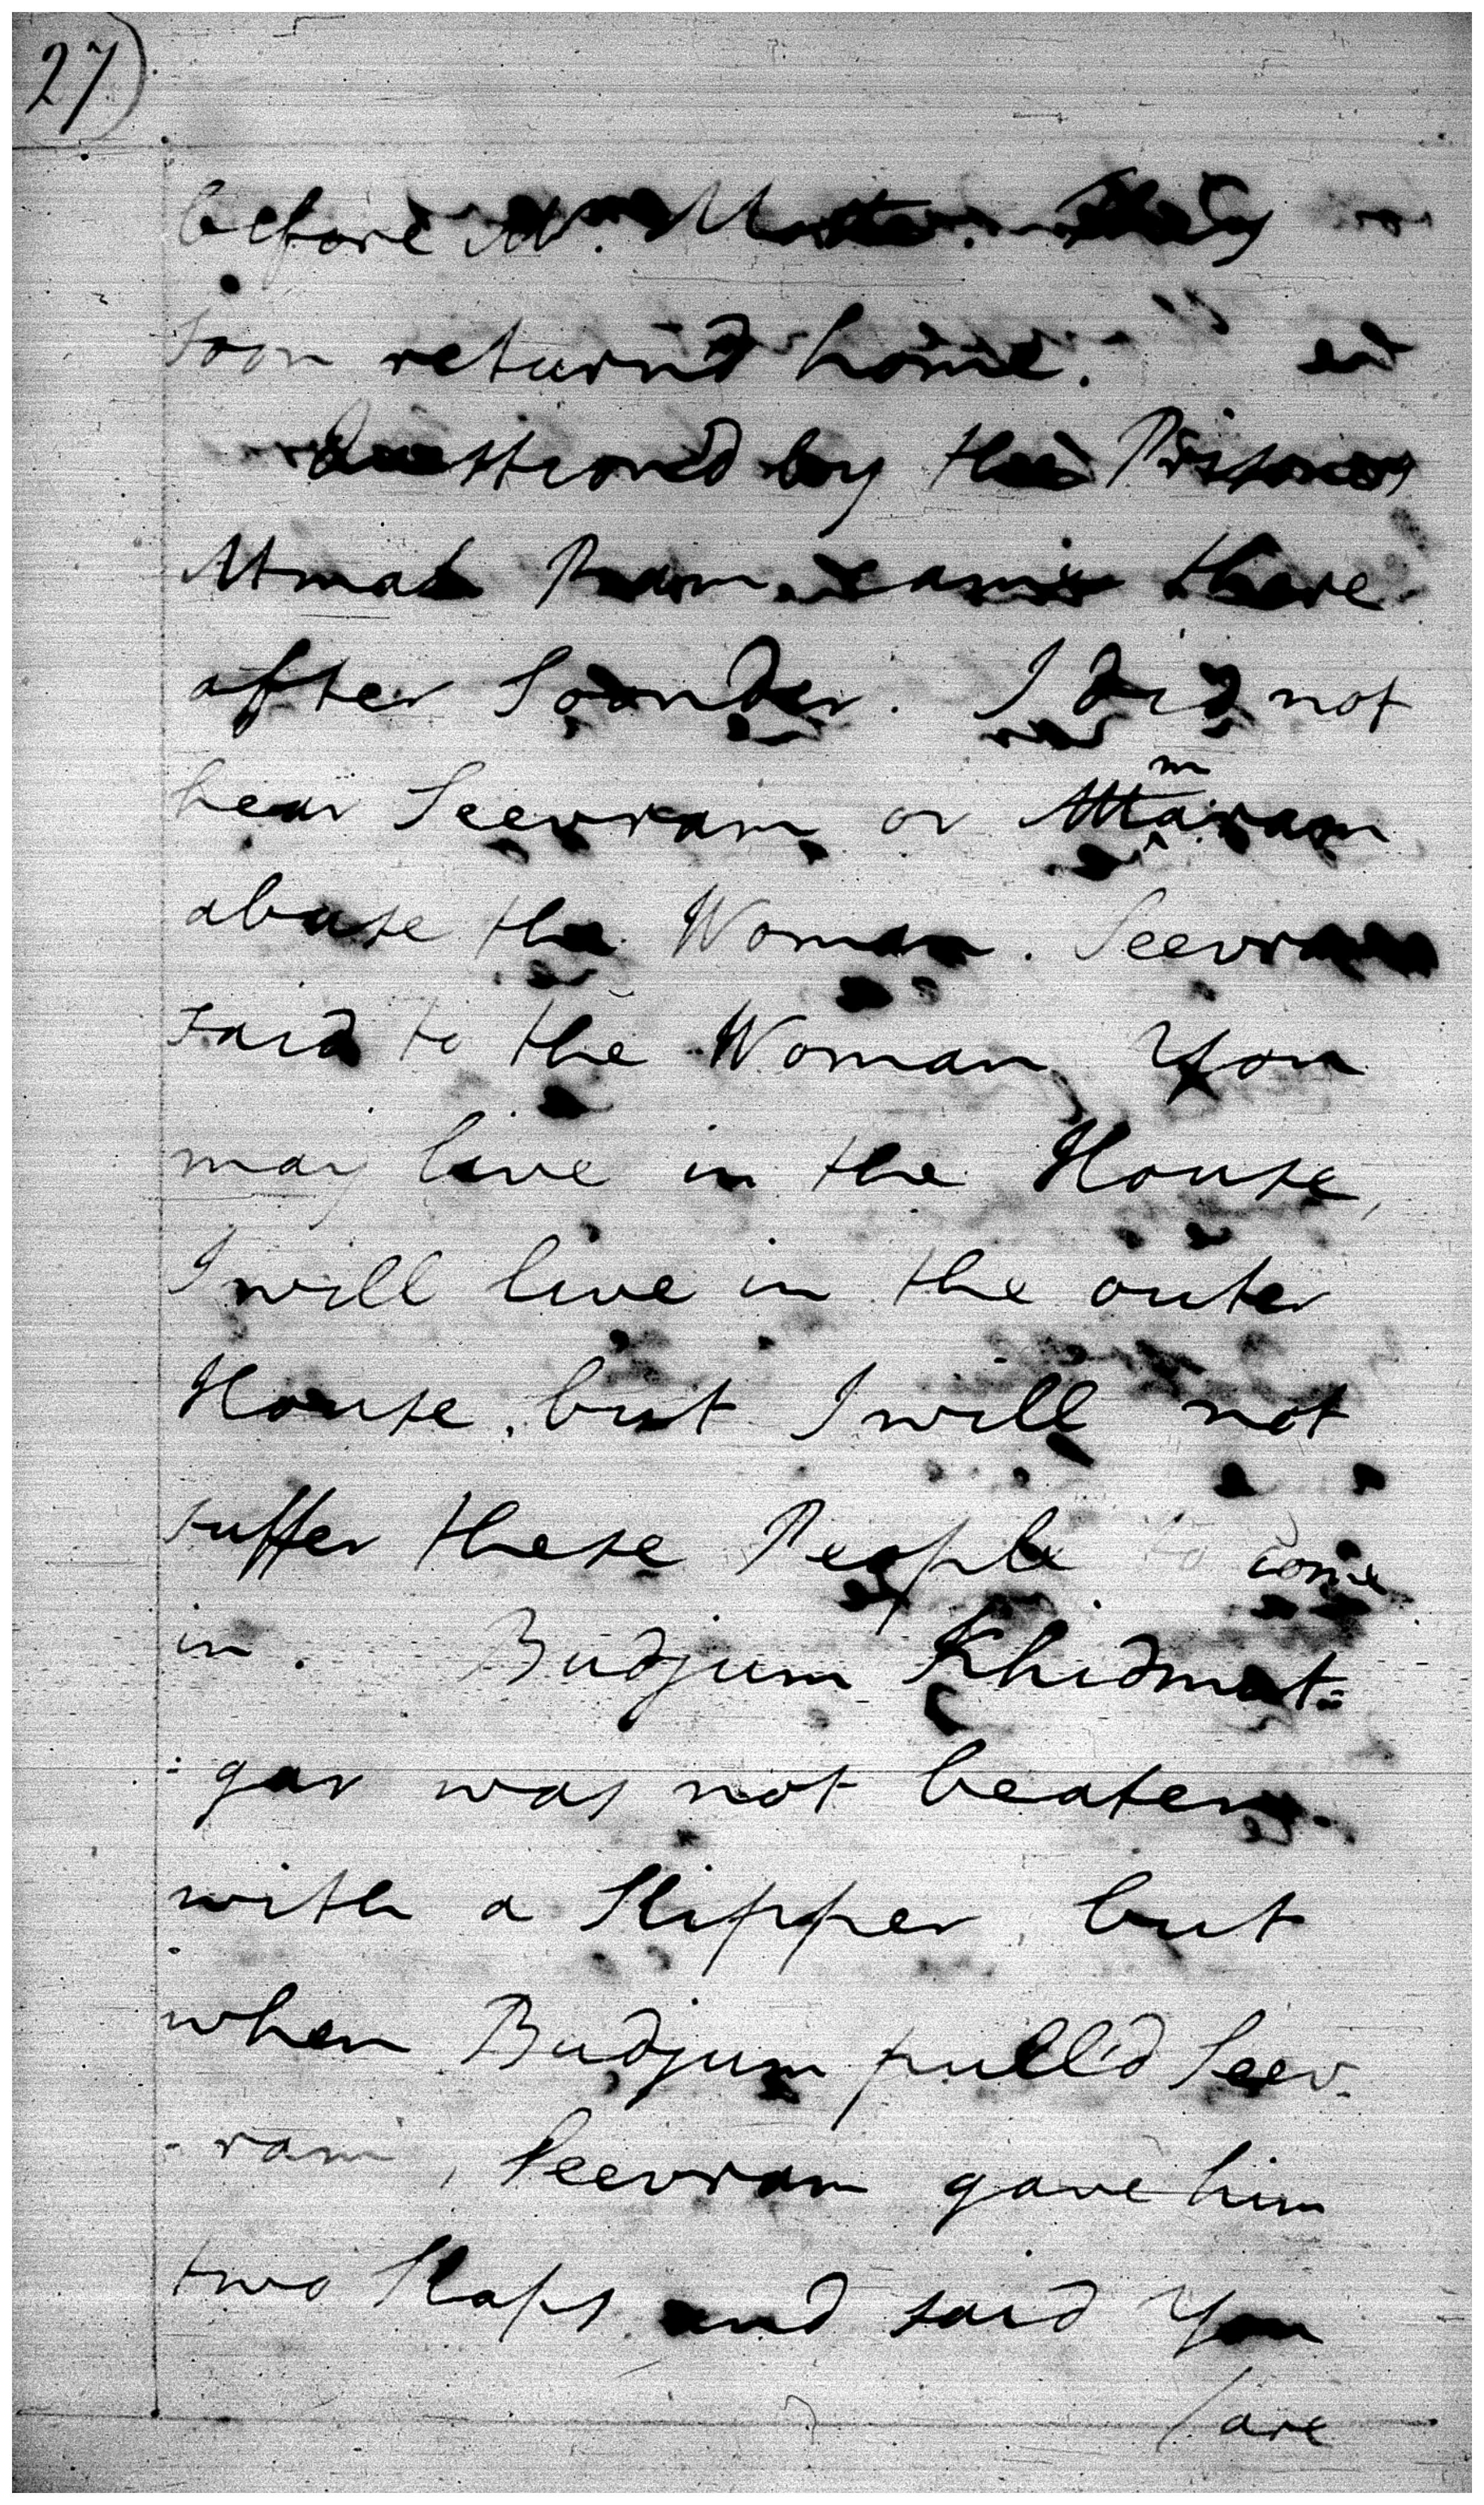 27)
before Mr. They
soon returnd home.
Questiond by the Prisoner
Atmah Ram came there
after Soonder. I did not
hear Seevram or Atmaram
abuse the Woman. Seevram
said to the Woman, You
may live in the House,
I will live in the outer
House, but I will not
suffer these People to come
in. Budjum Khidmut=
=gar was not beaten
with a Slipper but
when Budjum pull'd Seev-
-ram, Seevram gave him
two Slaps and said You
/are